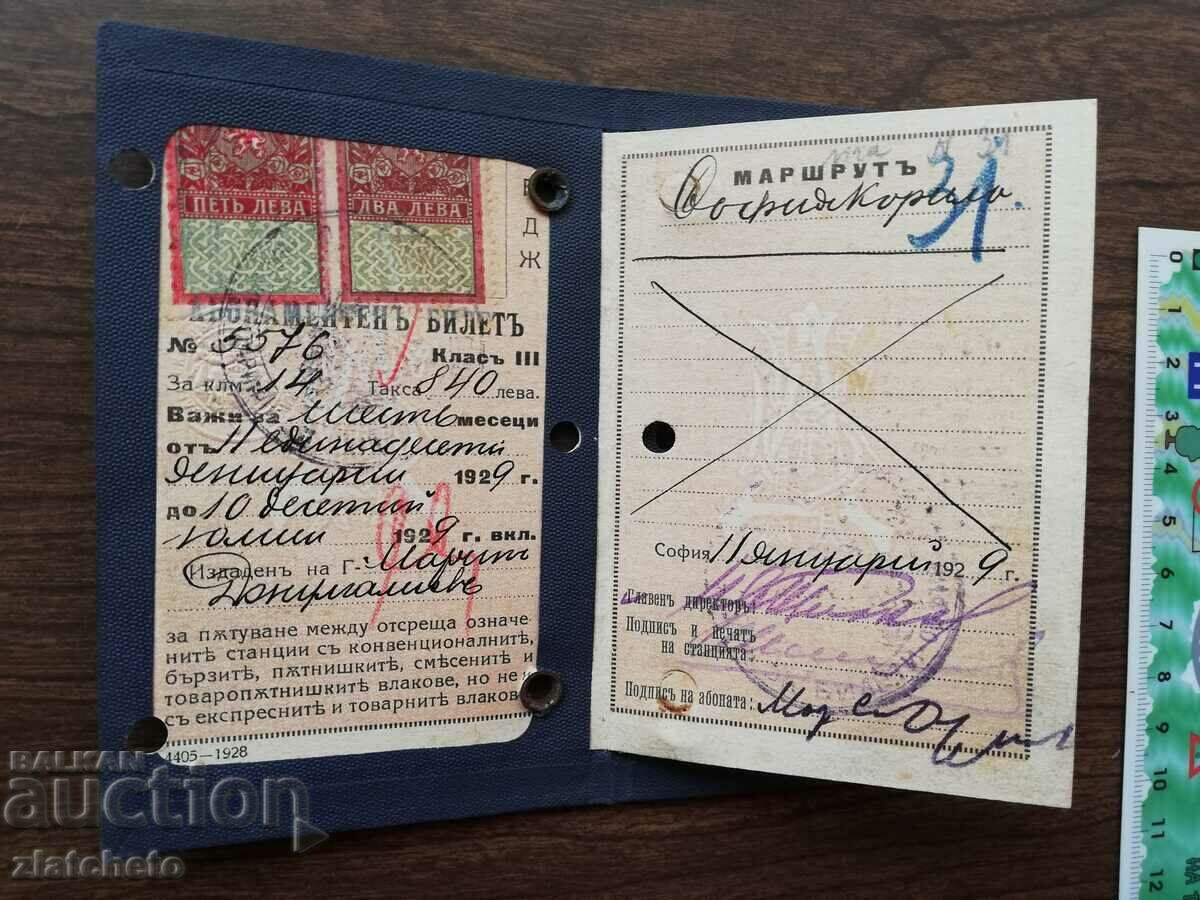 ПЕТЬ ЛЕВА
ДВА ЛЕВА
Д
Ж
АБОНАМЕНТЕНЪ БИЛЕТЪ
№ 5576 Класъ III
За клм. 14 Такса 840 лева.
Важи за шесть месеци
отъ 11 единадесети
януарий 1929 г.
до 10 десетий
юлий 1929 г. вкл.
Издаденъ на Г-
за пѫтуване между отсреща означе-
нитѣ станции съ конвенционалнитѣ,
бързитѣ, пѫтнишкитѣ, смѣсенитѣ и
товаропѫтнишкитѣ влакове, но не и
съ експреснитѣ и товарнитѣ влакове
4405—1928
МАРШРУТЪ
31.
София Корило
София 11 януарий 1929 г.
Главенъ директоръ:
Подписъ и печатъ
на станцията:
Подписъ на абоната:
0
1
2
3
4
5
6
7
8
9
10
11
12
BALKAN
auction
zlatcheto